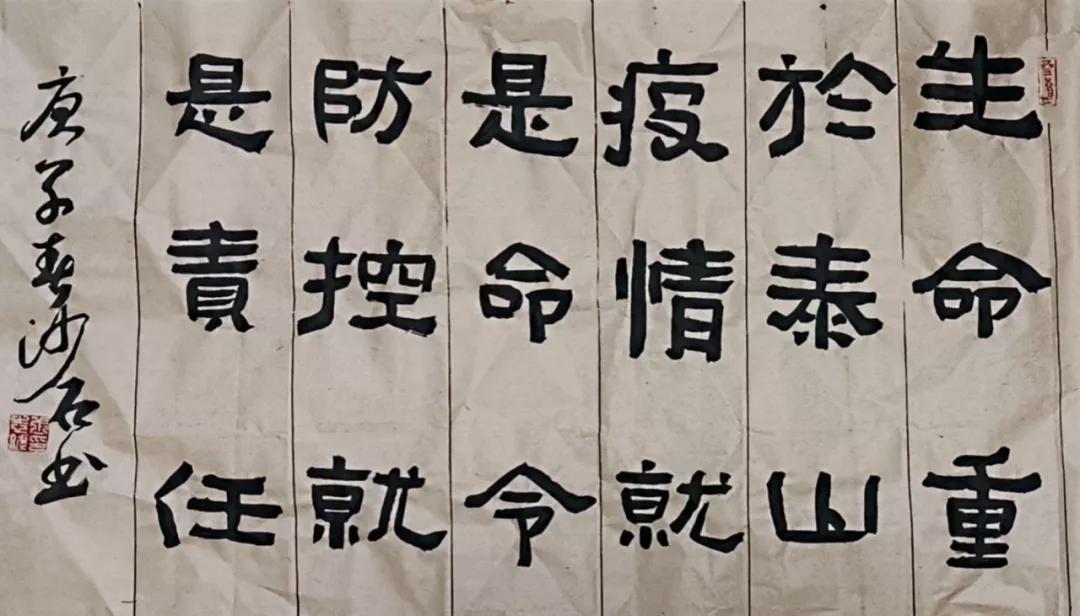 生命重
於泰山
疫情就
是命令
防控就
是責任
庚子春沙石书